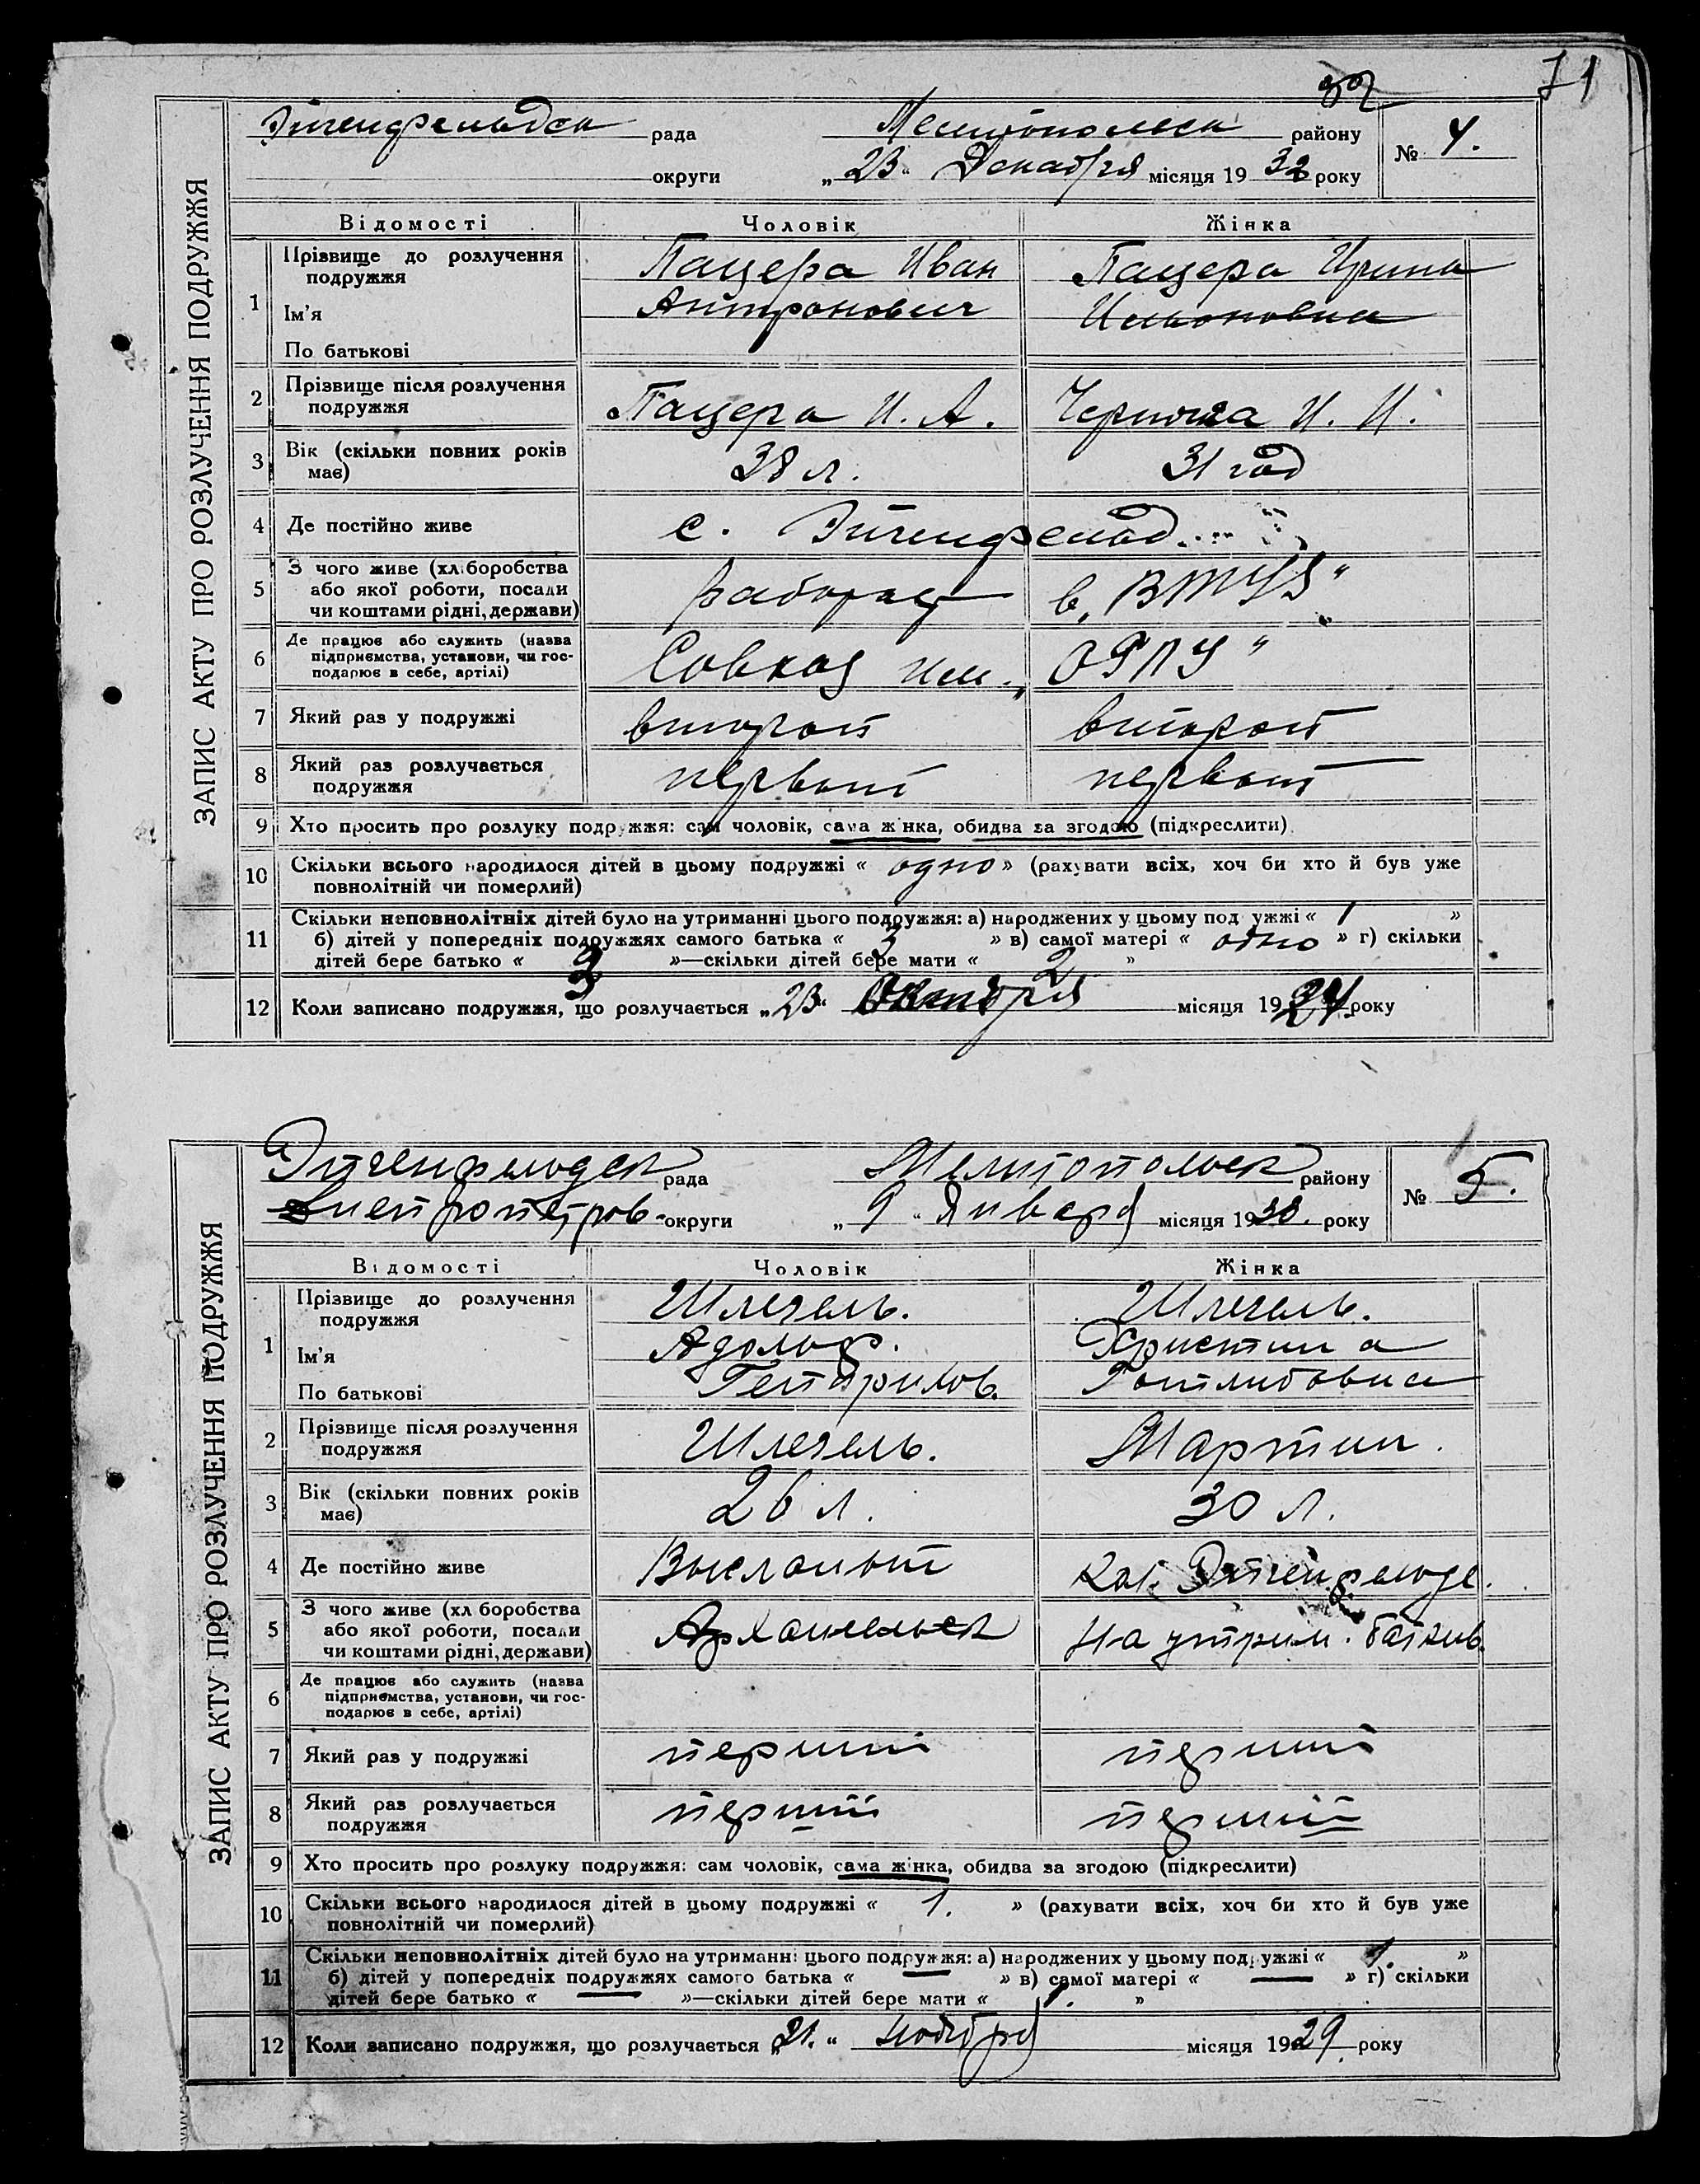 71
ЗАПИС АКТУ ПРО РОЗЛУЧЕННЯ ПОДРУЖЖЯ
рада Мелитопольск району
№ 4.
округи „23“ Декабря місяця 1932 року
Відомості Чоловік Жінка
1 Прізвище до розлучення подружжя Пацера Иван Пацера Ирина
Ім'я
По батькові
2 Прізвище після розлучення подружжя Пацера И. А. И. И.
3 Вік (скільки повних років має) 38 л. 31 год
4 Де постійно живе с. Эйгенфельд
5 З чого живе (хліборобства або якої роботи, посади чи коштами рідні, держави) в „
6 Де працює або служить (назва підприємства, установи, чи господарює в себе, артілі) Совхоз им. „ОГПУ“
7 Який раз у подружжі второй второй
8 Який раз розлучається подружжя первый первый
9 Хто просить про розлуку подружжя: сам чоловік, сама жінка, обидва за згодою (підкреслити)
10 Скільки всього народилося дітей в цьому подружжі « одно » (рахувати всіх, хоч би хто й був уже
повнолітній чи померлий)
11 Скільки неповнолітніх дітей було на утриманні цього подружжя: а) народжених у цьому подружжі « 1 »
б) дітей у попередніх подружжях самого батька « 3 » в) самої матері « одно » г) скільки
дітей бере батько « 3 »—скільки дітей бере мати « 2 »
12 Коли записано подружжя, що розлучається „23“ Октября місяця 19 24 року
ЗАПИС АКТУ ПРО РОЗЛУЧЕННЯ ПОДРУЖЖЯ
рада Мелитопольск району
№ 5.
Днепропетров- округи „9“ Января місяця 1933. року
Відомості Чоловік Жінка
1 Прізвище до розлучення подружжя Шлегель. Шлегель.
Ім'я Адольф. Христина
По батькові Готлибовна
2 Прізвище після розлучення подружжя Шлегель. Мартин.
3 Вік (скільки повних років має) 26 л. 30 л.
4 Де постійно живе Высланый
5 З чого живе (хліборобства або якої роботи, посади чи коштами рідні, держави) Архангельск На утрим. батьків
6 Де працює або служить (назва підприємства, установи, чи господарює в себе, артілі)
7 Який раз у подружжі перший перший
8 Який раз розлучається подружжя перший перший
9 Хто просить про розлуку подружжя: сам чоловік, сама жінка, обидва за згодою (підкреслити)
10 Скільки всього народилося дітей в цьому подружжі « 1. » (рахувати всіх, хоч би хто й був уже
повнолітній чи померлий)
11 Скільки неповнолітніх дітей було на утриманні цього подружжя: а) народжених у цьому подружжі « 1. »
б) дітей у попередніх подружжях самого батька « — » в) самої матері « — » г) скільки
дітей бере батько « — »—скільки дітей бере мати « 1. »
12 Коли записано подружжя, що розлучається „21.“ Ноября місяця 1929. року